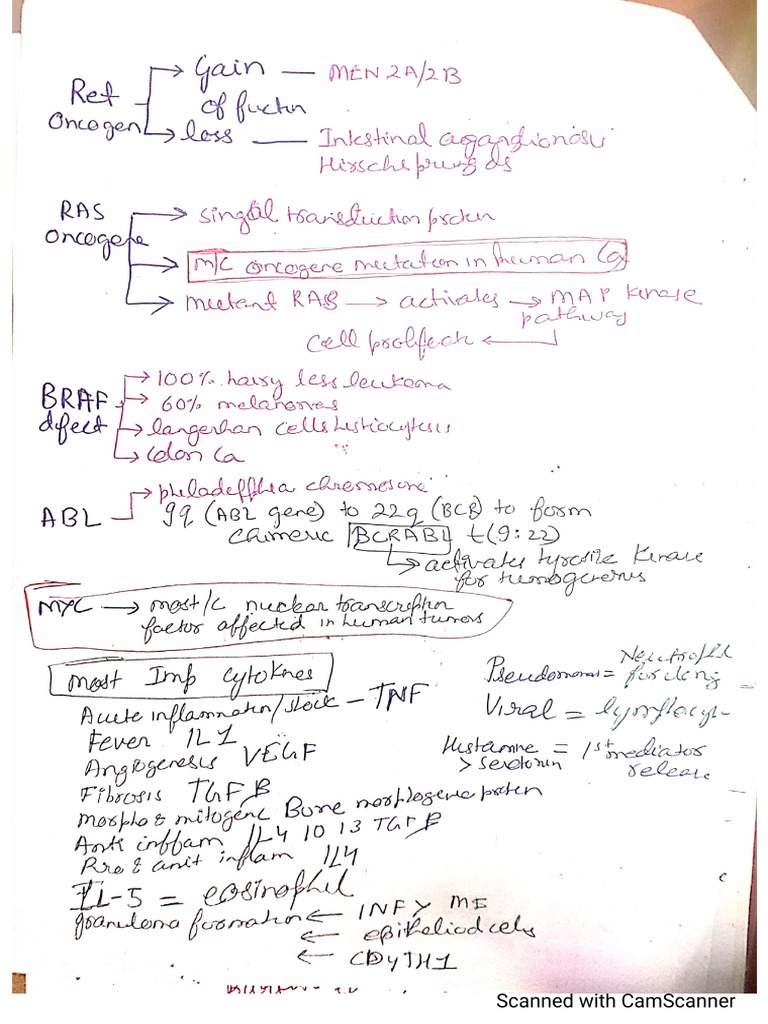 Ret Oncogen → Gain of fuctin — MEN 2A/2B
→ loss — Intestinal agangionosis
Hirschsprung ds
RAS oncogene → singal transduction protein
→ m/c oncogene mutation in human Ca
→ mutant RAS → activates → MAP kinase
pathway
cell prolifeatn ←
BRAF defect → 100% hairy less leukema
→ 60% melanomas
→ langerhan cells histiocytosis
→ Colon Ca
ABL → philadeffhia chromosome
9q (ABL gene) to 22q (BCR) to form
chimeric BCRABL t(9:22)
→ activates tyrosile kinase
for tumogenerus
MYC → most/c nuclear transcription
factor affected in human tumors
most Imp cytoknes
Acute inflammation/shock - TNF
Fever IL1
Angiogenesis VEGF
Fibrosis TGF β
Morpho & mitogenc Bone morphogenic protein
Anti inffam IL4 10 13 TGF β
Pro & anit inflam IL4
IL-5 = eosinophil
granuloma formation ← INF γ ME
← epitheliod cells
← CD4 TH1
Pseudomonas = Neutrophil
for long
Viral = lymphocyt-
Histamine = 1st mediator
> serotonin release
Scanned with CamScanner